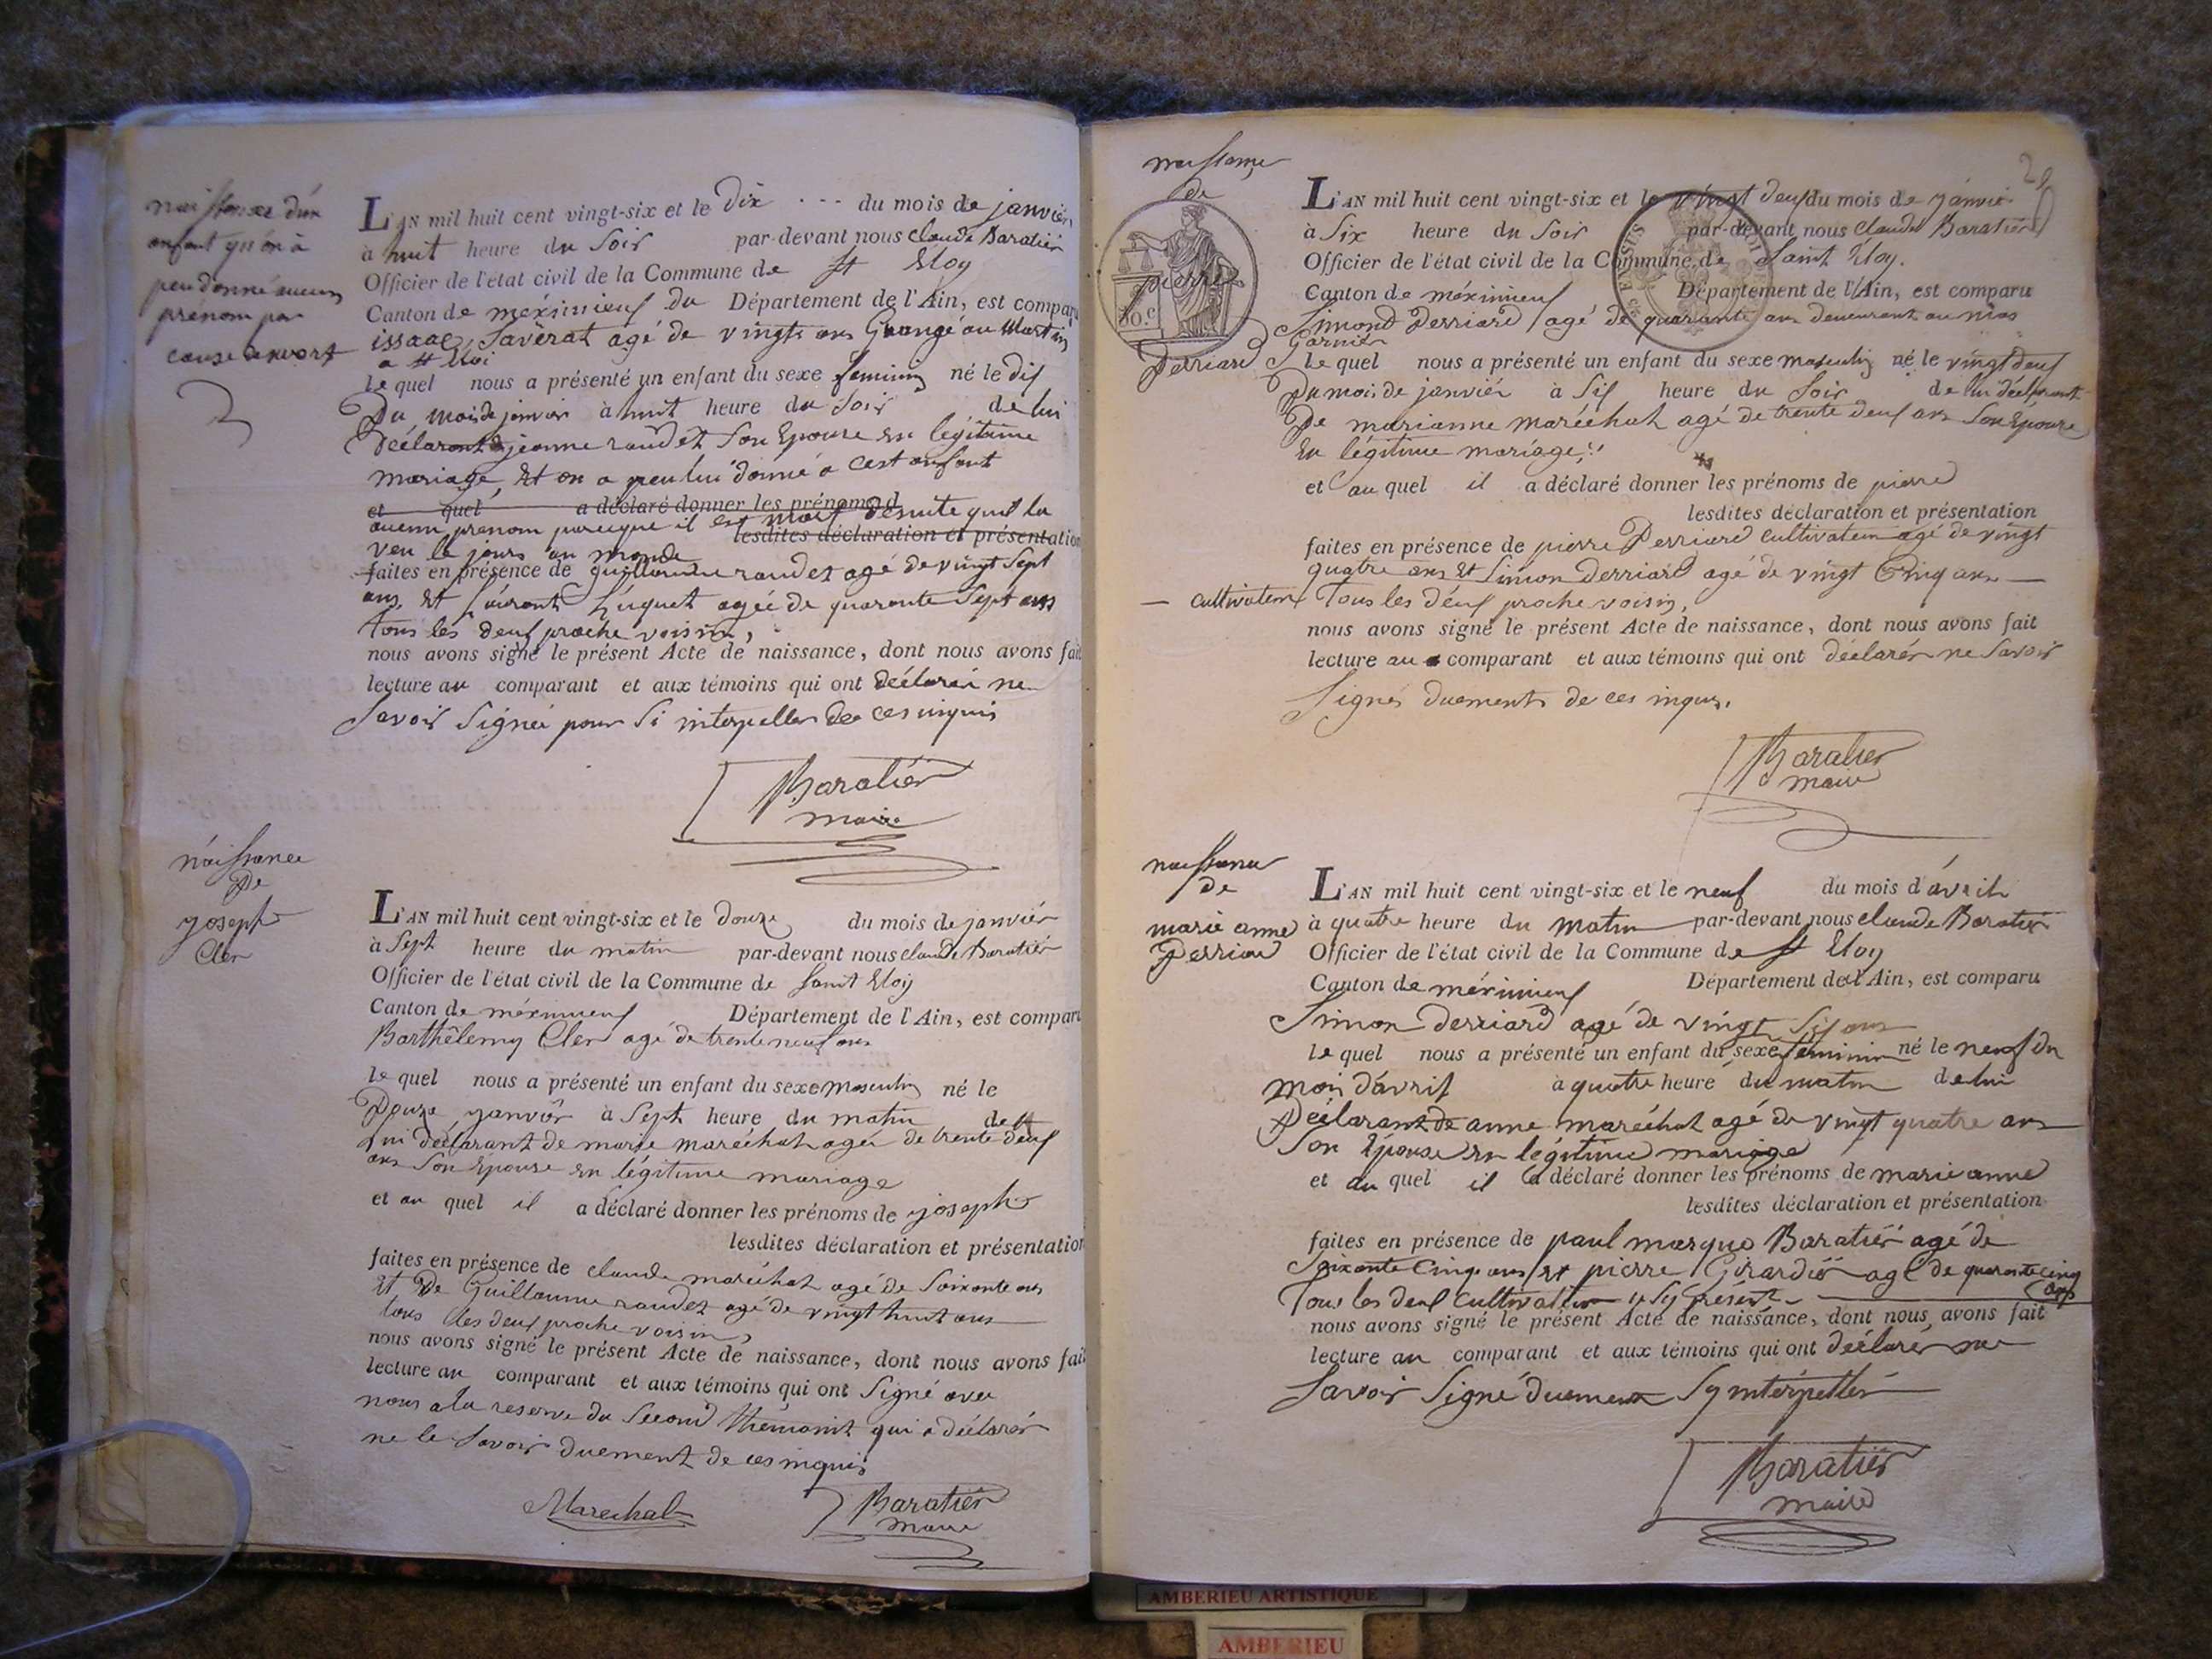 naissance d'un
enfant qu'on à
peu donné aucun
prénom par
cause de mort
L'AN mil huit cent vingt-six et le Dix du mois de janvier
à huit heure du Soir par-devant nous claude Baratier
Officier de l'état civil de la Commune de St Eloy
Canton de méximieux du Département de l'Ain, est comparu
issaac Savërat agé de vingt ans Grangé au Martin
a St Eloi
le quel nous a présenté un enfant du sexe feminin né le dix
Du mois de janvier à huit heure du Soir de lui
Déclarant de jeanne raudet Son Epouse En legitime
mariage, Et on a peu lui donné a cest enfant
et quel a déclaré donner les prénoms d
aucun prenom parceque il est mort desuite quil la
lesdites déclaration et présentation
veu le jours au monde
faites en présence de guillaume raudet agé de vingt Sept
ans, Et Laurent Luquet agée de quarante Sept ans
tous les deux proche voisin,
nous avons signé le présent Acte de naissance, dont nous avons fait
lecture au comparant et aux témoins qui ont déclarér ne
Savoir Signéé pour Si interpeller de ces inquis
Baratier
maire
naissance
De
joseph
Cler
L'AN mil huit cent vingt-six et le douze du mois de janviér
à Sept heure du matin par-devant nous claude Baratiér
Officier de l'état civil de la Commune de Saint Eloy
Canton de méximieux Département de l'Ain, est comparu
Barthêlemy Cler agé de trente neuf ans
le quel nous a présenté un enfant du sexe masculin né le
Douze janvier à Sept heure du matin de
Lui déclarant de marie maréchal agée de trente deux
ans Son Epouse En légitime mariage
et au quel il a déclaré donner les prénoms de joseph
lesdites déclaration et présentation
faites en présence de claude maréchal agé de Soixante ans
Et De Guillaume raudet agé de vingt huit ans
tous les deux proche voisin,
nous avons signé le présent Acte de naissance, dont nous avons fait
lecture au comparant et aux témoins qui ont Signé avec
nous a la reserve du Second thémoint qui a déclarér
ne le Savoir duement de ces inquis
Marechal
Baratiér
maire
29
naissance
de
pierre
Derriard
L'AN mil huit cent vingt-six et le vingt deux du mois de janvier
à Six heure du Soir par-devant nous Claude Baratiér
Officier de l'état civil de la Commune de Saint Eloy.
Canton de méximieux Département de l'Ain, est comparu
Simond Derriard agé de quarante ans demeurant au mas
Garnier
le quel nous a présenté un enfant du sexe masculin né le vingt deux
Du mois de janviér à Six heure du Soir de lui déclarant
De marianne maréchal agé de trente deux ans Son Epouse
En légitime mariage
et au quel il a déclaré donner les prénoms de pierre
lesdites déclaration et présentation
faites en présence de pierre Derriard Cultivateur agé de vingt
quatre ans Et Simon Derriard agé de vingt Cinq ans
cultivateur Tous les deux proche voisin,
nous avons signé le présent Acte de naissance, dont nous avons fait
lecture au comparant et aux témoins qui ont déclarér ne Savoir
Signés duement de ces inquis.
Baratier
maire
naissance
de
marie anne
Derriard
L'AN mil huit cent vingt-six et le neuf du mois d'avril
à quatre heure du matin par-devant nous claude Baratier
Officier de l'état civil de la Commune de St Eloy
Canton de méximieux Département de l'Ain, est comparu
Simon Derriard agé de vingt Six ans
le quel nous a présenté un enfant du sexe feminin né le neuf du
mois d'avril à quatre heure du matin de lui
Déclarant de anne maréchal agé de vingt quatre ans
Son Epouse En légitime mariage
et au quel il a déclaré donner les prénoms de marie anne
lesdites déclaration et présentation
faites en présence de paul marque Baratiér agé de
Soixante Cinq ans Et pierre Girardier agé de quarante cinq
ans
Tous les deux Cultivateur présent
nous avons signé le présent Acte de naissance, dont nous avons fait
lecture au comparant et aux témoins qui ont déclarér ne
Savoir Signé duement Sy interpeller
Baratiér
maire
AMBERIEU ARTISTIQUE
AMBERIEU